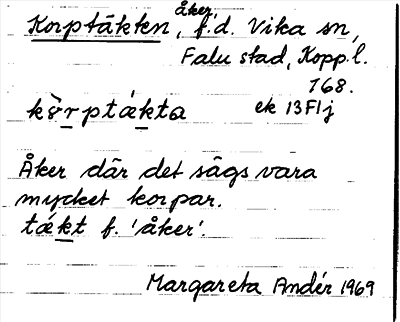 Korptäkten, åker, f.d. Vika sn,
Falu stad, Kopp.l.
168.
kò̀rptǽkta ek 13Flj
Åker där det sägs vara
mycket korpar.
tǽkt f. 'åker'.
Margareta Andér 1969